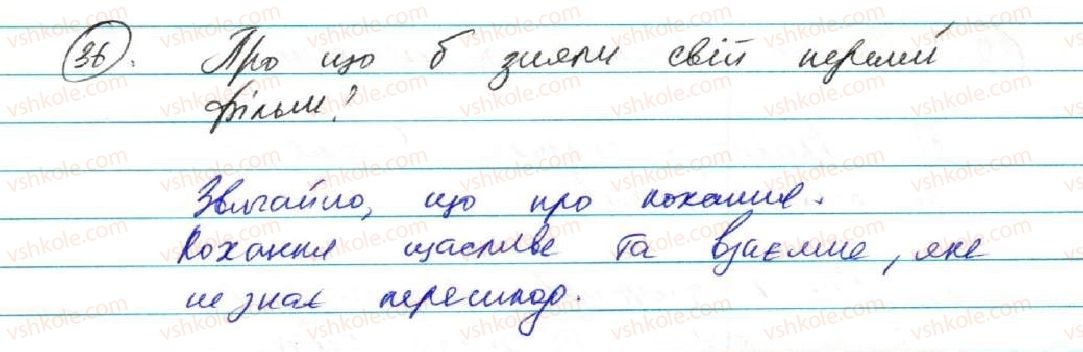 36. Про що б зняли свій перший
фільм?
Звичайно, що про кохання.
Кохання щасливе та взаємне, яке
не знає перешкод.